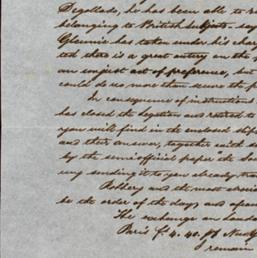 Degollado, he has been able to re
belonging to British subjects. say
Glennie has taken under his char
ted there is a great outcry on the p
an unjust act of preference, but
could do no more than secure the p
In consequence of instructions
has closed the legation and retired to
you will find in the enclosed slip
and their answer, together with se
by the semiofficial paper the So
my sending it to you already tra
Robbery and the most
be the order of the days and
The exchange on London
Paris f. 4.40. pf New
I remain